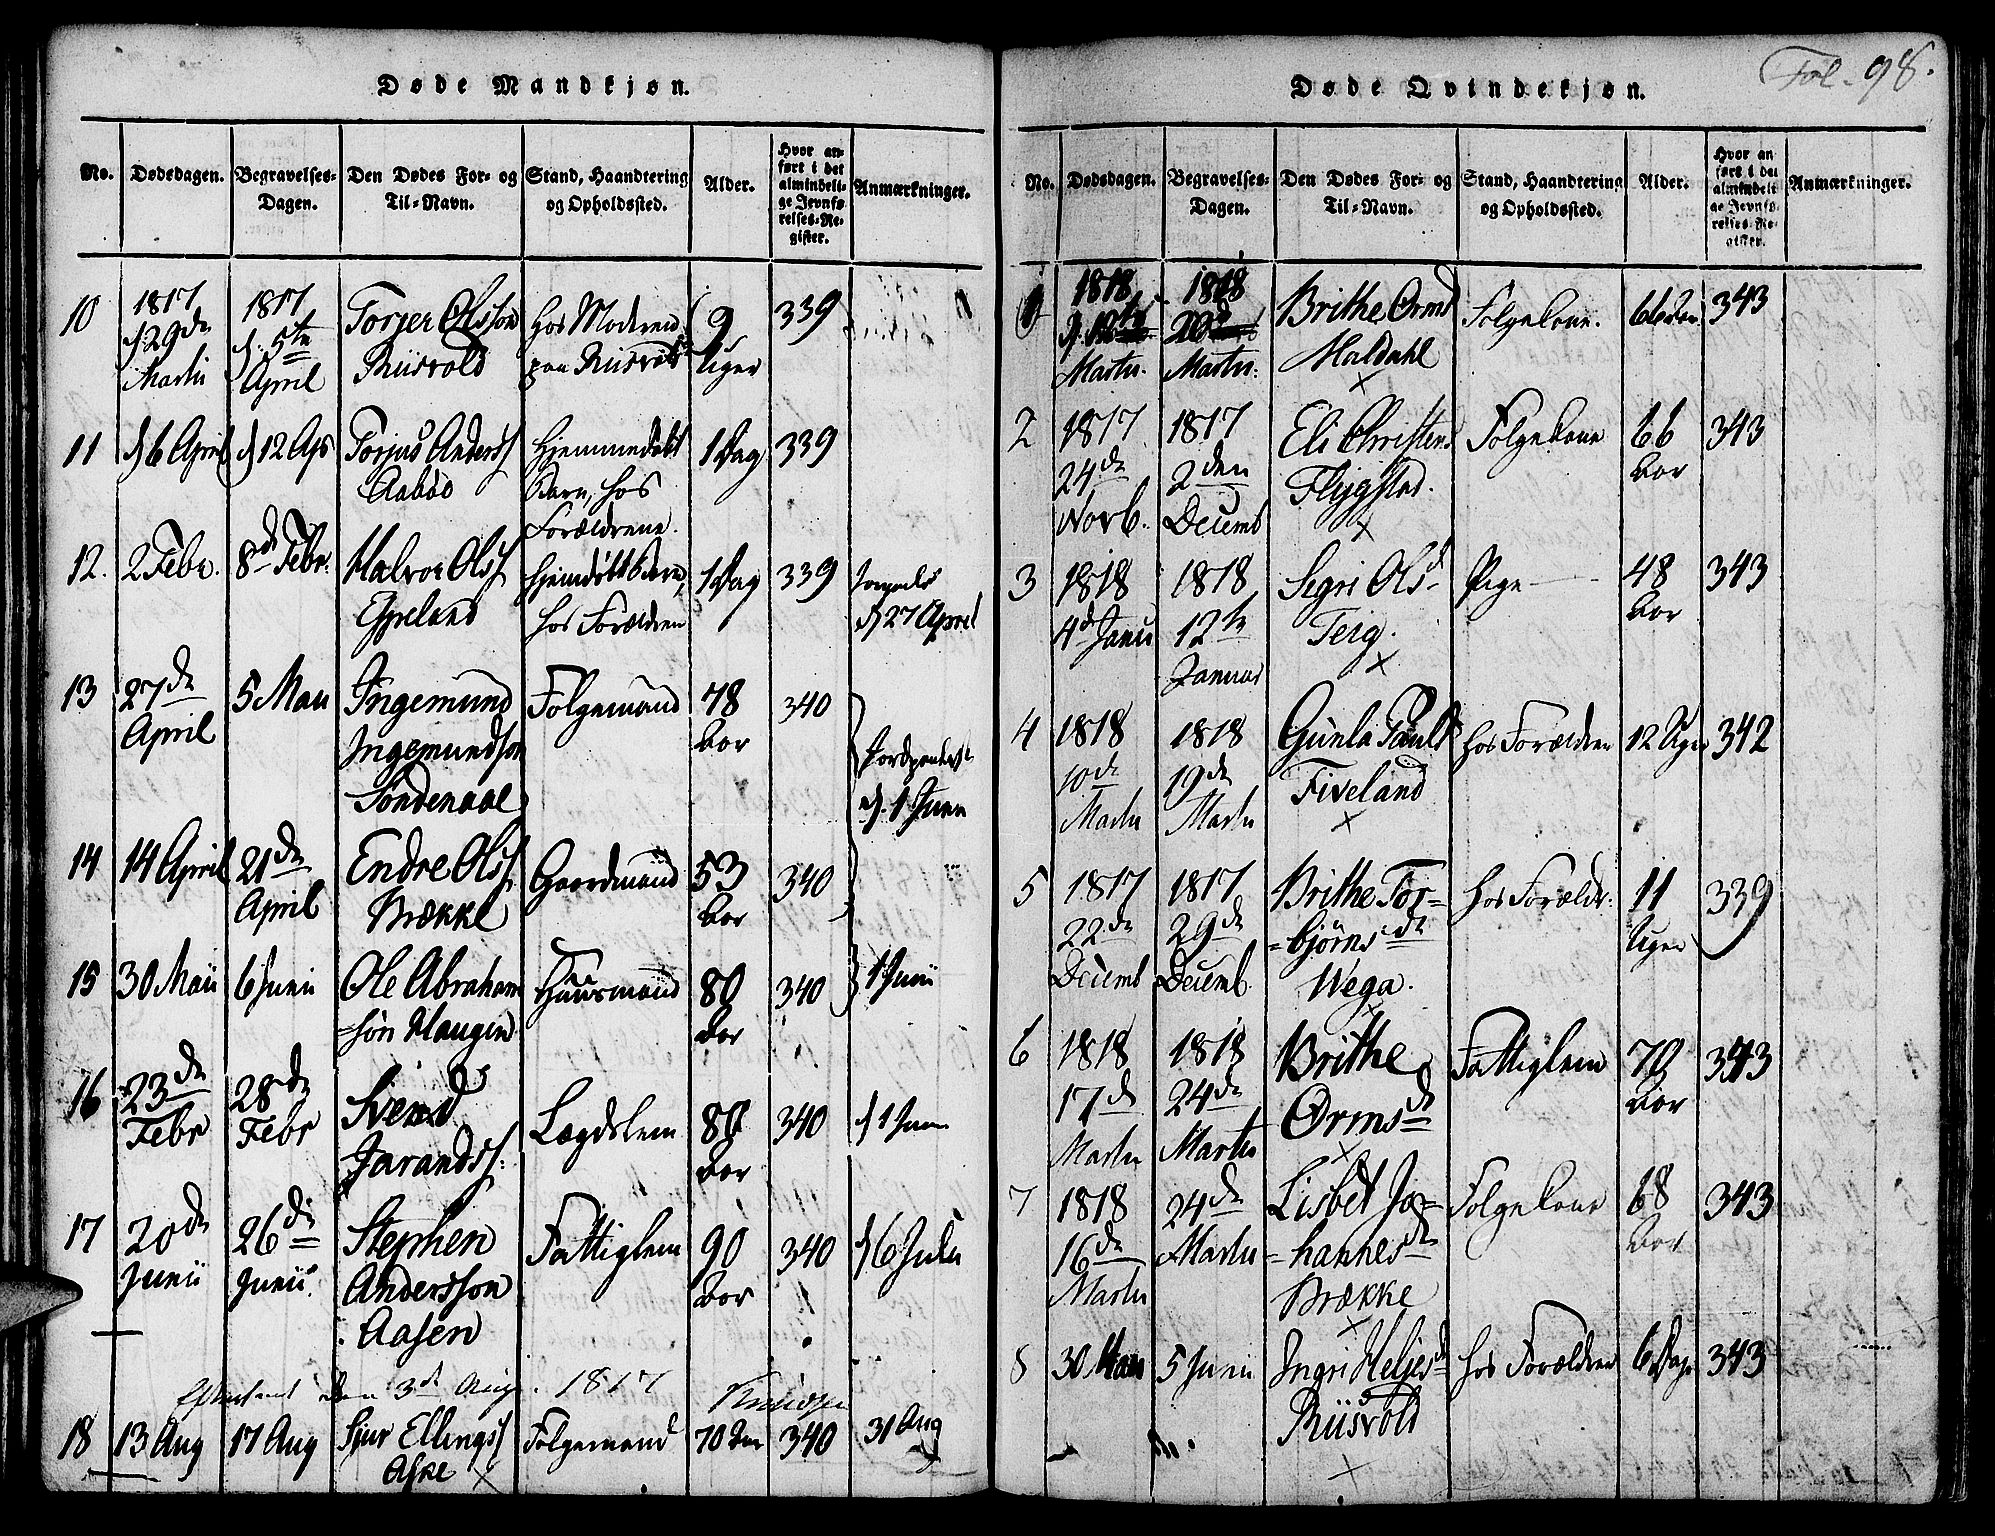 Døde Mandkjøn.
No. Dødsdagen. Begravelses-Dagen. Den Dødes For- og Til-Navn. Stand, Haandtering og Opholdssted. Alder. Hvor anført i det almindelige Jevnførelses-Register. Anmærkninger.
10 1817 d. 29de Martii 1817 d. 5te April Torger Olsson Riisvold hos Moderen paa Riisvold 9 Uger 339
11 d 6 April d 12 Apr Torjus Anderss Aabøe Hjemmedøbt Barn, hos Forældrene. 1 Dag 339
12. 2 Febr. 8de Febr. Halvor Olss Espeland hjemdøbt Barn, hos Forældren 1 Dag 339 d 27 April
13 27de April 5 Mai Ingemund Ingemundson Søndenaae Følgemand 78 Aar 340 d. 1 Junii
14 14 April 21de April Endre Olss Brække Gaardmand 53 Aar 340
15 30 Maii 6 Junii Ole Abraham=søn Haugen Huusmand 80 Aar 340 1 Junii
16 23de Febr 28de Febr Svend Jarandss. Lægdslem 80 Aar 340 d 1 Junii
17 20de Junii 26de Junii Stephen Andersson Aasen Fattiglem 90 Aar 340 d 6 Julii
den 3de Aug. 1817
18 13 Aug 17 Aug Sjur Ellings Aske Følgemand 70 Aar 340 31 Aug
Fol. 98.
Døde Qvindekjøn.
No. Dødsdagen. Begravelses-Dagen. Den Dødes For- og Til-Navn. Stand, Haandtering og Opholdssted. Alder. Hvor anført i det almindelige Jevnførelses-Register. Anmærkninger.
1 1818 Martii. 1818 Martii. Brithe Orms Maldahl Følgekone. 343
2 1817 24de Novb. 1817 2den Decemb Eli Christens Flyggstad. Følgekone 66 Aar 343
3 1818 4de Janu 1818 12te Januar Segri Olsd Terg. Pige 48 Aar 343
4 1818 10de Martii 1818 19de Martii Gunla Pauls Fiveland hos Forældren 12 Uger 342
5 1817 22de Decemb 1817 29de Decemb. Brithe Tor=bjørnsd Wega. hos Forældr. 11 Uger 339
6 1818 17de Martii 1818 24de Martii Brithe Ormsd Fattiglem 70 Aar 343
7 1818 16de Martii 24de Martii Lisbet Jo=hannesd Brække Følgekone 68 Aar 343
8 30 Maii 5 Junii Ingri Helgesd Riisvold hos Forældren 6 Dage 343